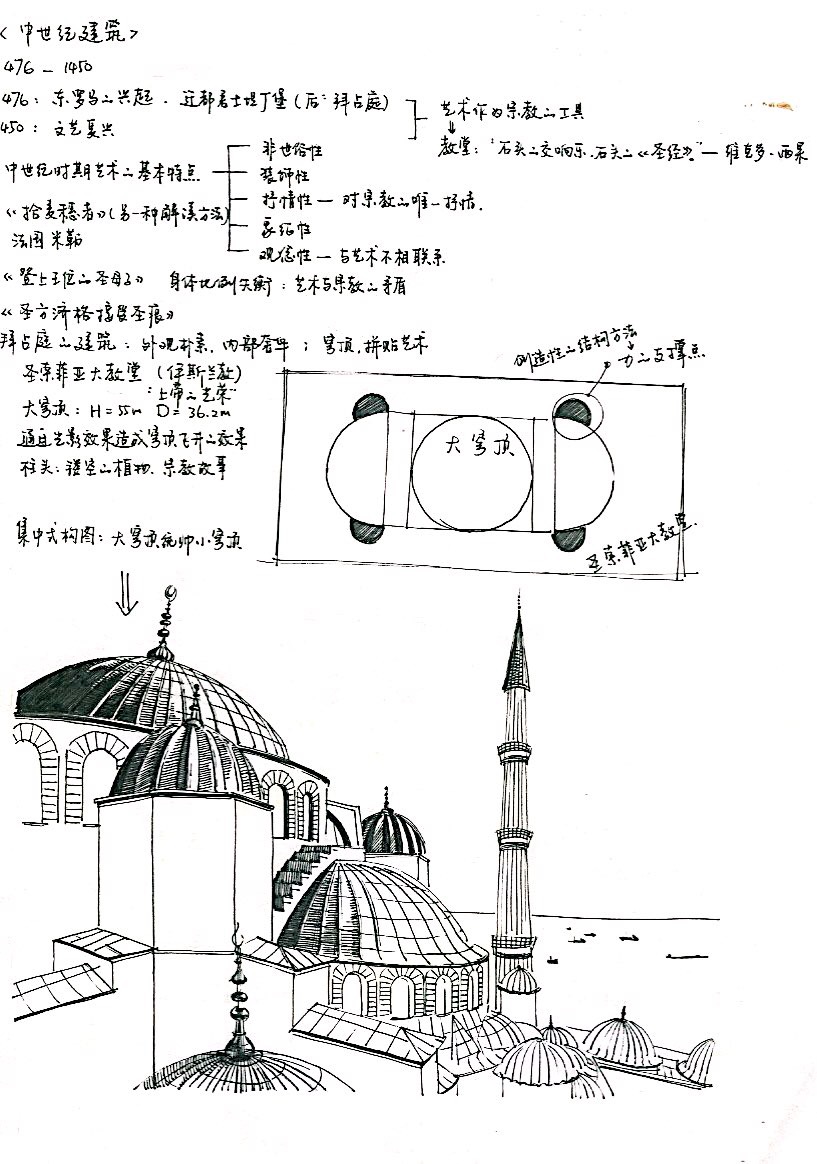 <中世纪建筑>
476 - 1450
476: 东罗马的兴起. 迁都君士坦丁堡 (后: 拜占庭)
450: 文艺复兴
艺术作为宗教的工具
教堂: "石头的交响乐. 石头的《圣经》" — 维克多·雨果
中世纪时期艺术的基本特点
非世俗性
装饰性
抒情性 — 对宗教的唯一抒情.
象征性
观念性 — 与艺术不相联系
《拾麦穗者》(另一种解读方法)
法国 米勒
《登上王位的圣母子》 身体比例失衡: 艺术与宗教的矛盾
《圣方济格接受圣痕》
拜占庭的建筑: 外观朴素, 内部奢华; 穹顶, 拼贴艺术
圣索菲亚大教堂 (伊斯兰教)
"上帝的光荣"
大穹顶: H=55m D=36.2m
通过光影效果造成穹顶飞升的效果
柱头: 镂空的植物. 宗教故事
创造性的结构方法
力的支撑点
大穹顶
圣索菲亚大教堂.
集中式构图: 大穹顶统帅小穹顶